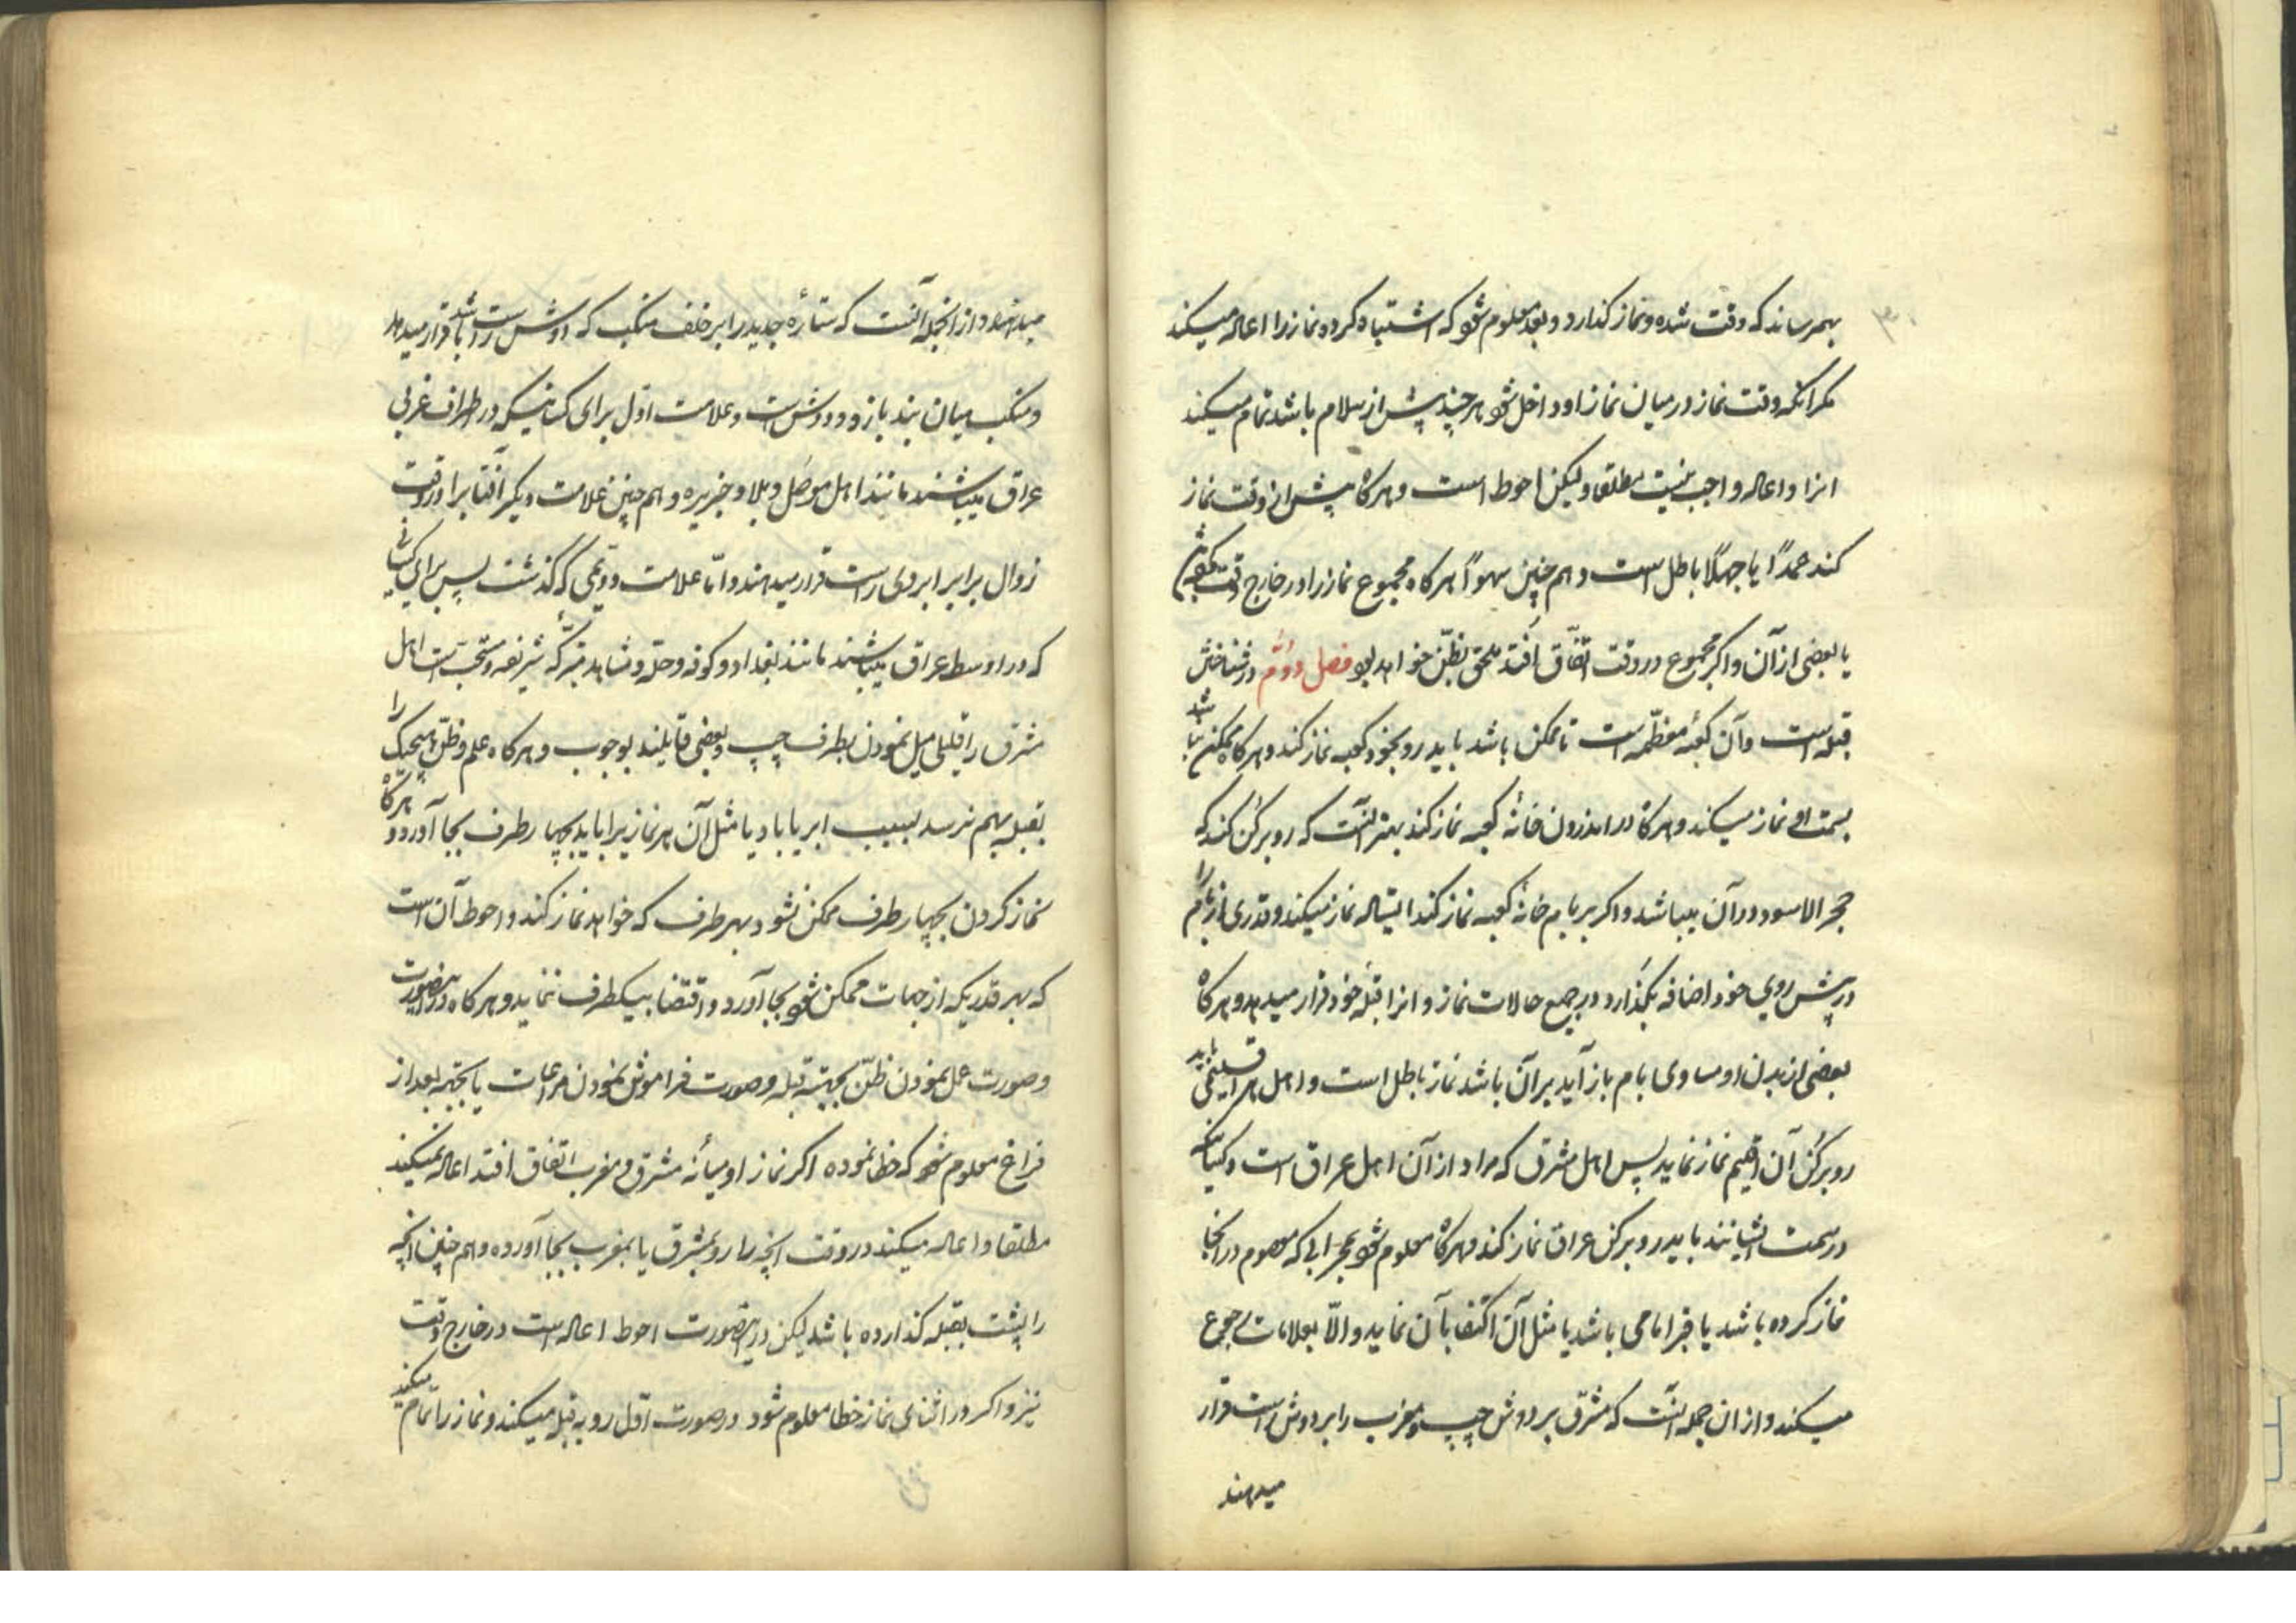 بهمرساند که وقت شده و نماز کذارد و بعد معلوم شود که اشتباه کرده نماز را اعاده میکند
مکر انکه وقت نماز در میان نماز او داخل شود هر چند پیش از سلام باشد تمام میکند
انرا و اعاده واجب نیست مطلقا و لیکن احوط است و هر کاه پیش از وقت نماز
کند عمدًا یا جهلًا باطل است و هم چنین سهوًا هر کاه مجموع نماز را در خارج وقت کند
یا بعضی از آن و اکر مجموع در وقت اتفاق افتد ملحق بظنّ خواهد بود فصل دوّم در شناختن
قبله است و آن کعبه معظّمه است تا ممکن باشد باید رو بخود کعبه نماز کند و هر کاه ممکن نباشد
بسمت او نماز میکند و هر کاه در اندرون خانه کعبه نماز کند بهتر آنست که رو برکن کند که
حجر الاسود در آن میباشد و اکر بر بام خانه کعبه نماز کند ایستاده نماز میکند و قدری از بام را
در پیش روی خود اضافه بکذارد در جمیع حالات نماز و انرا قبله خود قرار میدهد و هر کاه
بعضی از بدن او مساوی بام باز آید بر آن باشد نماز باطل است و اهل هر اقلیمی باید
رو برکن آن اقلیم نماز نماید پس اهل مشرق که مراد از آن اهل عراق است و کسانیکه
در سمت ایشانند باید رو برکن عراق نماز کند و هر کاه معلوم شود محرابی که معصوم در انجا
نماز کرده باشد یا قبر امامی باشد یا مثل آن اکتفا بآن نماید و الّا بعلامات رجوع
میکند و از ان جمله آنست که مشرق بر دوش چپ و مغرب را بر دوش راست قرار
میدهند
میدهند و از انجمله آنست که ستارهٔ جدی را بر خلف منکب که دوش راست باشد قرار میدهد
و منکب میان بند بازو و دوش است و علامت اوّل برای کسانیکه در طراف غربی
عراق میباشند مانند اهل موصل و بلاد جزیره و هم چنین علامت دیکر آفتابرا در وقت
زوال برابر ابروی راست قرار میدهند و امّا علامت دوّیمی که کذشت پس برای کسانی
که در اوسط عراق میباشند مانند بغداد و کوفه و حلّه و مشاهد متبرّکه شریفه و مستحبّ است اهل
مشرق را قلیلی میل نمودن بطرف چپ و بعضی قایلند بوجوب و هر کاه علم و ظنّ هیچیک را
بقبله بهم نرسد بسبب ابر یا باد یا مثل آن هر نمازیرا باید بچهار طرف بجا آورد و هر کاه
نماز کردن بچهار طرف ممکن نشود بهر طرف که خواهد نماز کند و احوط آن است
که بهر قدریکه از جهات ممکن شود بجا آورد و اقتضا بیکطرف ننماید و هر کاه در اینصورت
و صورت عمل نمودن ظنّ بجهته قبله و صورت فراموش نمودن مراعات یا بجهته بعد از
فراغ معلوم شود که خطا نموده اکر نماز او میانه مشرق و مغرب اتفاق افتد اعاده نمیکند
مطلقا و اعاده میکند در وقت انچه را رو بمشرق یا بمغرب بجا آورده و هم چنین انچه
را پشت بقبله کذارده باشد لیکن در اینصورت احوط اعاده است در خارج وقت
نیز و اکر در اثنای نماز خطا معلوم شود در صورت اوّل رو به قبله میکند و نماز را تمام میکند